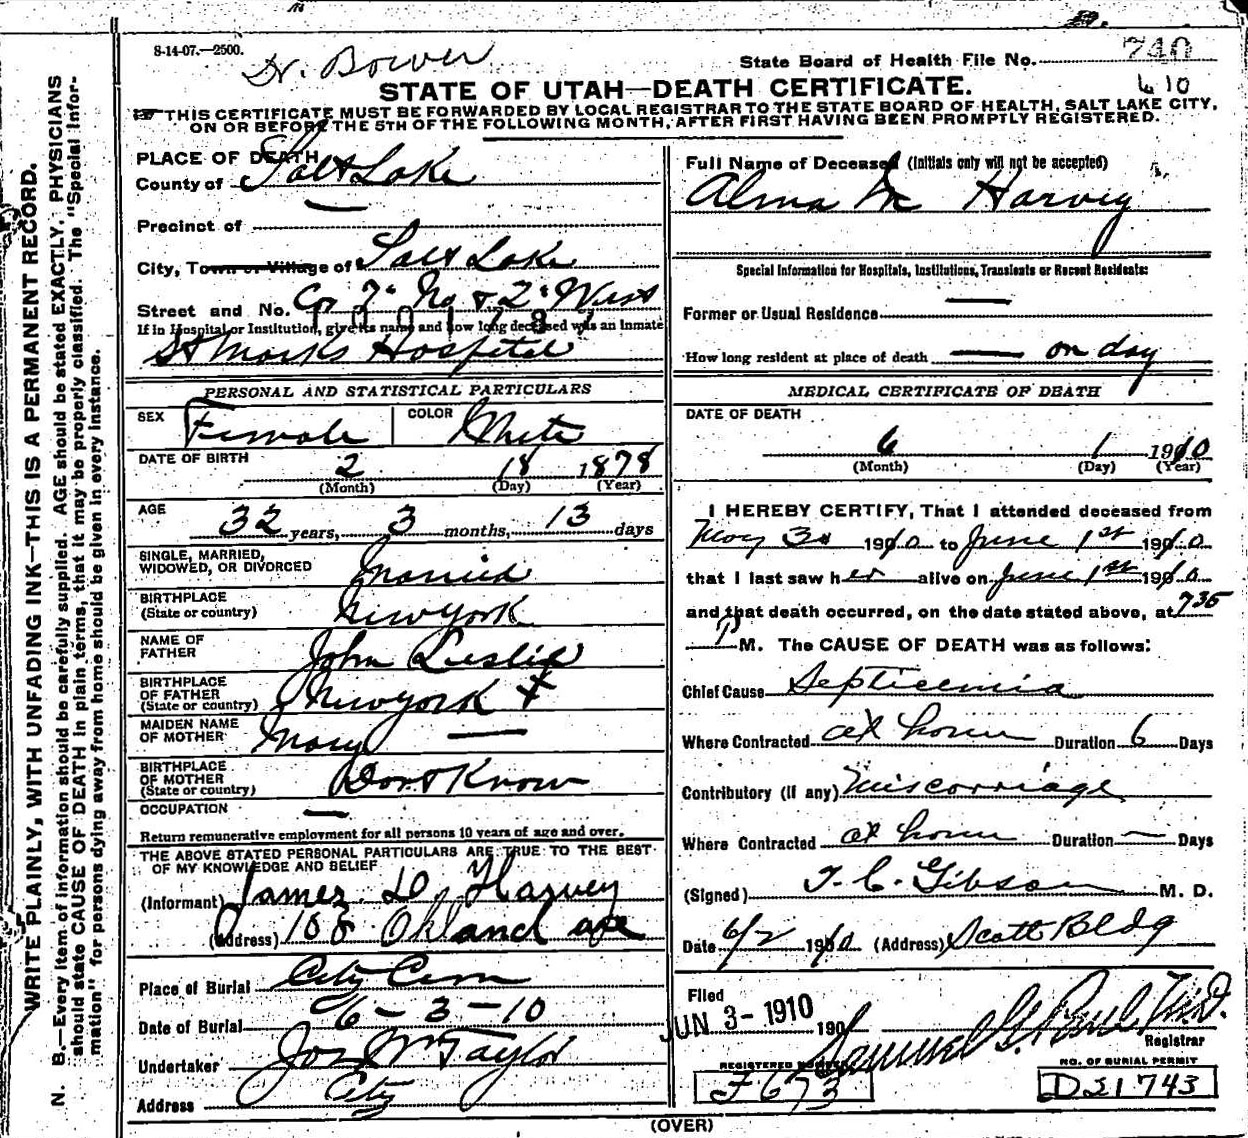 8-14-07.—2500.
Dr. Bower
State Board of Health File No. 740
610
STATE OF UTAH—DEATH CERTIFICATE.
THIS CERTIFICATE MUST BE FORWARDED BY LOCAL REGISTRAR TO THE STATE BOARD OF HEALTH, SALT LAKE CITY,
ON OR BEFORE THE 5TH OF THE FOLLOWING MONTH, AFTER FIRST HAVING BEEN PROMPTLY REGISTERED.
WRITE PLAINLY, WITH UNFADING INK—THIS IS A PERMANENT RECORD.
N. B.—Every item of information should be carefully supplied. AGE should be stated EXACTLY. PHYSICIANS
should state CAUSE OF DEATH in plain terms, that it may be properly classified. The "Special Infor-
mation" for persons dying away from home should be given in every instance.
PLACE OF DEATH
County of Salt Lake
Precinct of —
City, Town or Village of Salt Lake
Street and No. Cor 7" No & 2" West
If in Hospital or Institution, give its name and how long deceased was an inmate
St Marks Hospital
PERSONAL AND STATISTICAL PARTICULARS
SEX Female COLOR White
DATE OF BIRTH
2 18 1878
(Month) (Day) (Year)
AGE
32 years, 3 months, 13 days
SINGLE, MARRIED,
WIDOWED, OR DIVORCED Married
BIRTHPLACE
(State or country) New York
NAME OF
FATHER John Leslie
BIRTHPLACE
OF FATHER
(State or country) New York
MAIDEN NAME
OF MOTHER Mary —
BIRTHPLACE
OF MOTHER
(State or country) Dont Know
OCCUPATION —
Return remunerative employment for all persons 10 years of age and over.
THE ABOVE STATED PERSONAL PARTICULARS ARE TRUE TO THE BEST
OF MY KNOWLEDGE AND BELIEF
(Informant) James D, Harvey
(Address) 108 Okland ave
Place of Burial City Cem
Date of Burial 6-3-10
Undertaker Jos Wm Taylor
Address City
Full Name of Deceased (Initials only will not be accepted)
Alma M Harvey
Special Information for Hospitals, Institutions, Transients or Recent Residents:
Former or Usual Residence —
How long resident at place of death — on day
MEDICAL CERTIFICATE OF DEATH
DATE OF DEATH
6 1 1910
(Month) (Day) (Year)
I HEREBY CERTIFY, That I attended deceased from
May 30 1910 to June 1st 1910
that I last saw her alive on June 1st 1910
and that death occurred, on the date stated above, at 735
P M. The CAUSE OF DEATH was as follows:
Chief Cause Septicemia
Where Contracted at home Duration 6 Days
Contributory (if any) Miscarriage
Where Contracted at home Duration — Days
(Signed) T. C. Gibson M. D.
Date 6/2 1910 (Address) Scott Bldg
Filed
JUN 3 - 1910 190
Samuel G. Paul M.D.
Registrar
REGISTERED NUMBER
F673
NO. OF BURIAL PERMIT
D21743
(OVER)